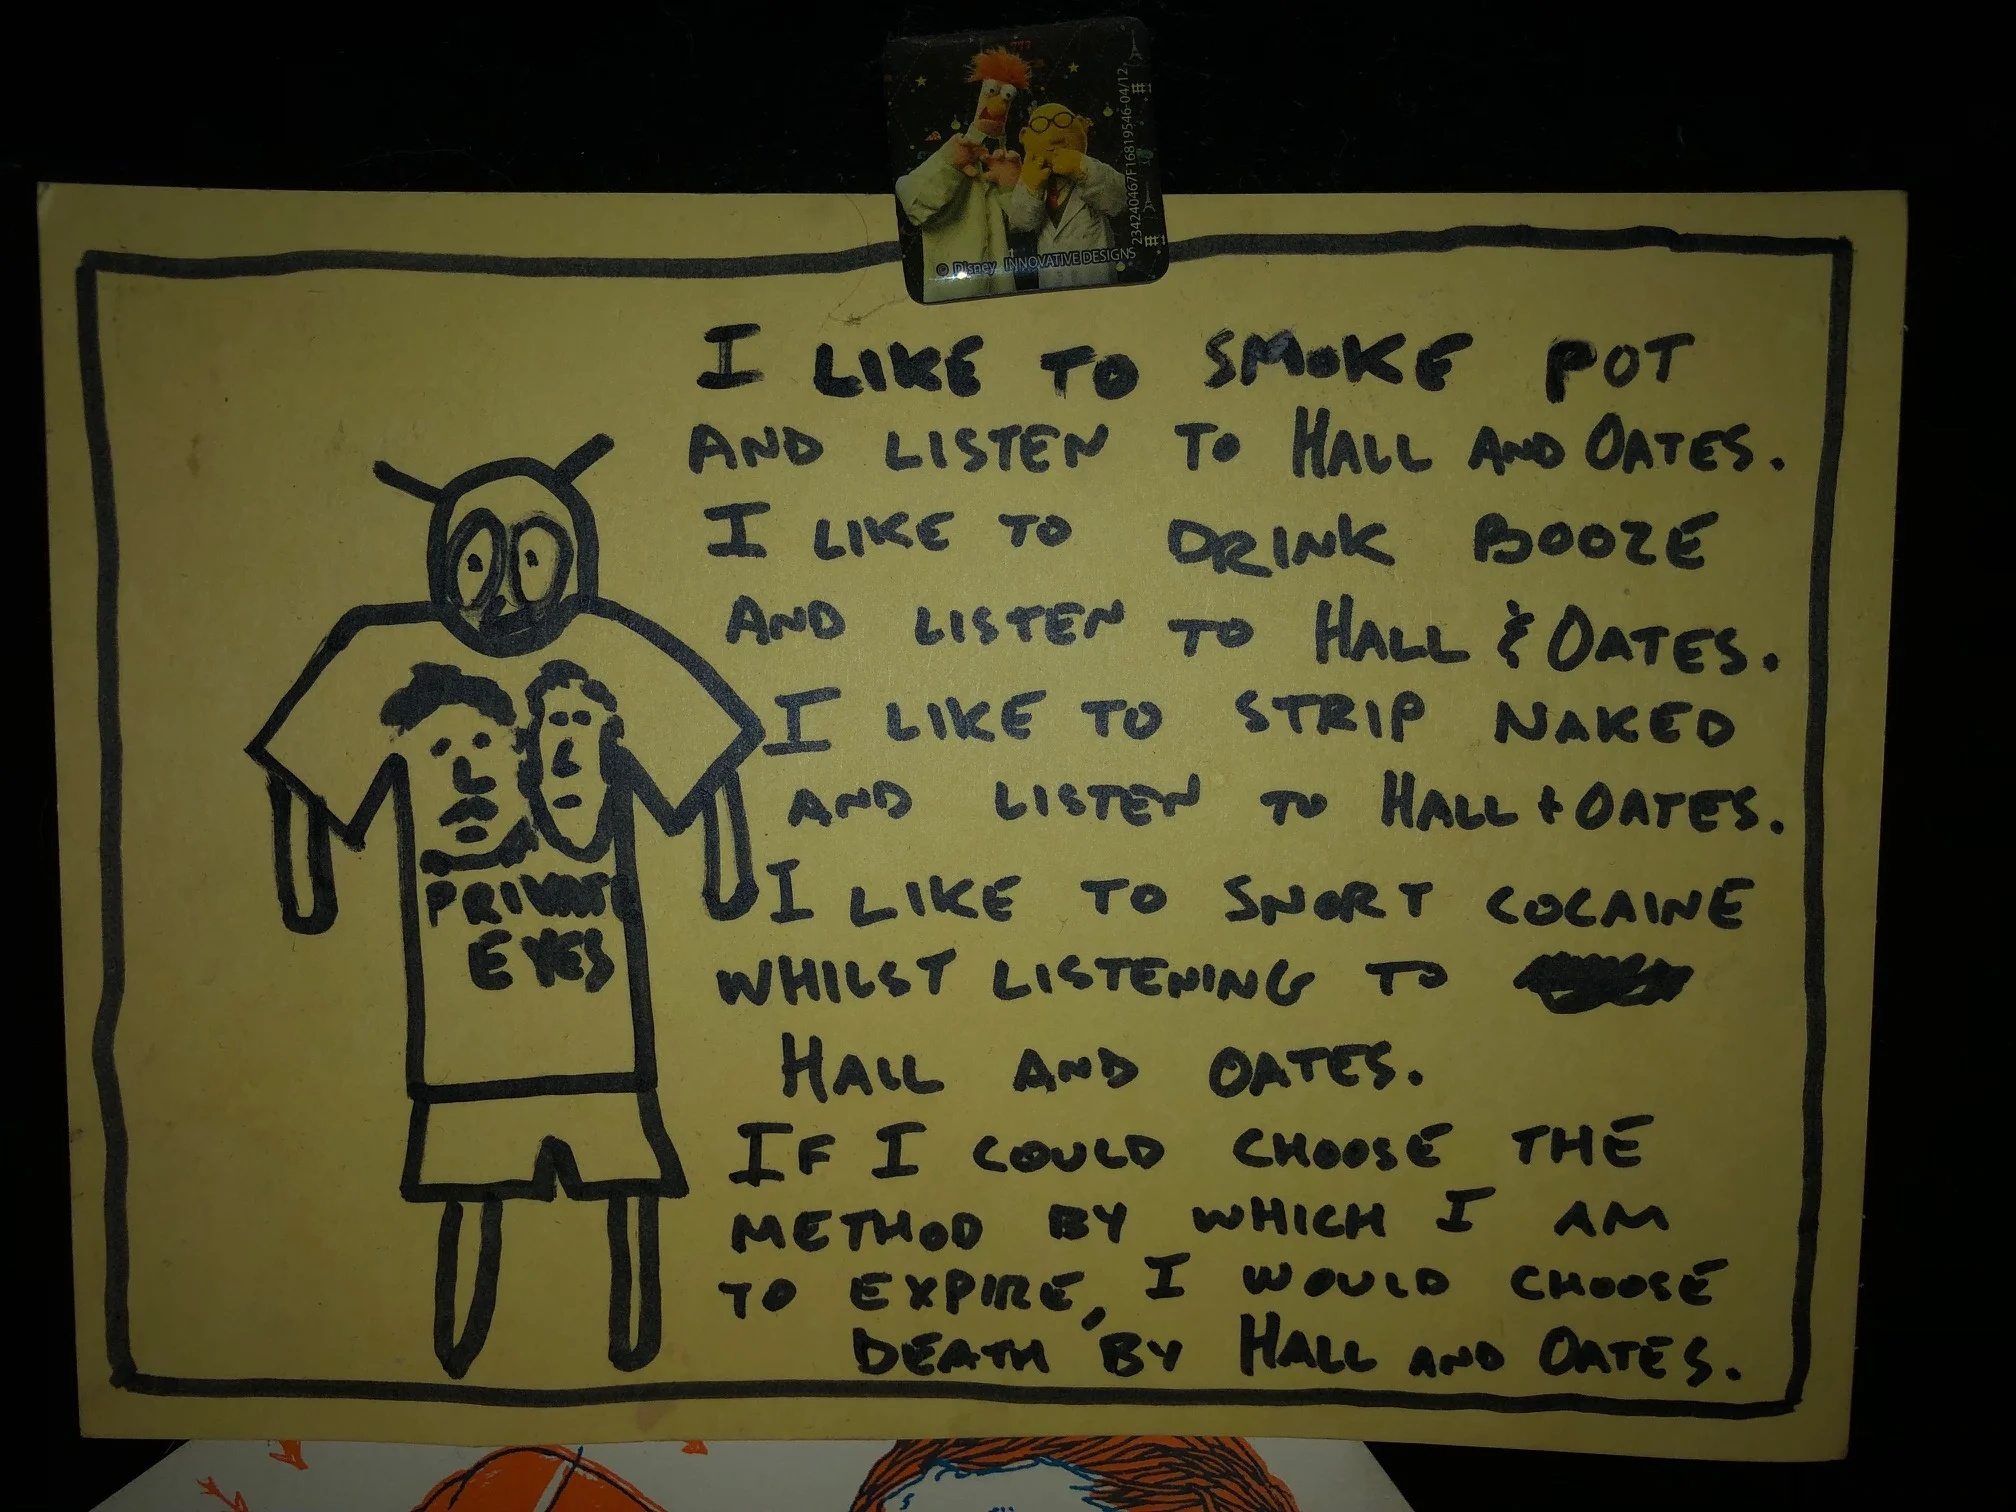 #1
© Disney INNOVATIVE DESIGNS
234240467F16819546 04/12
#1
I LIKE TO SMOKE POT
AND LISTEN TO HALL AND OATES.
I LIKE TO DRINK BOOZE
AND LISTEN TO HALL & OATES.
I LIKE TO STRIP NAKED
AND LISTEN TO HALL + OATES.
I LIKE TO SNORT COCAINE
WHILST LISTENING TO
HALL AND OATES.
IF I COULD CHOOSE THE
METHOD BY WHICH I AM
TO EXPIRE, I WOULD CHOOSE
DEATH BY HALL AND OATES.
PRIVATE
EYES